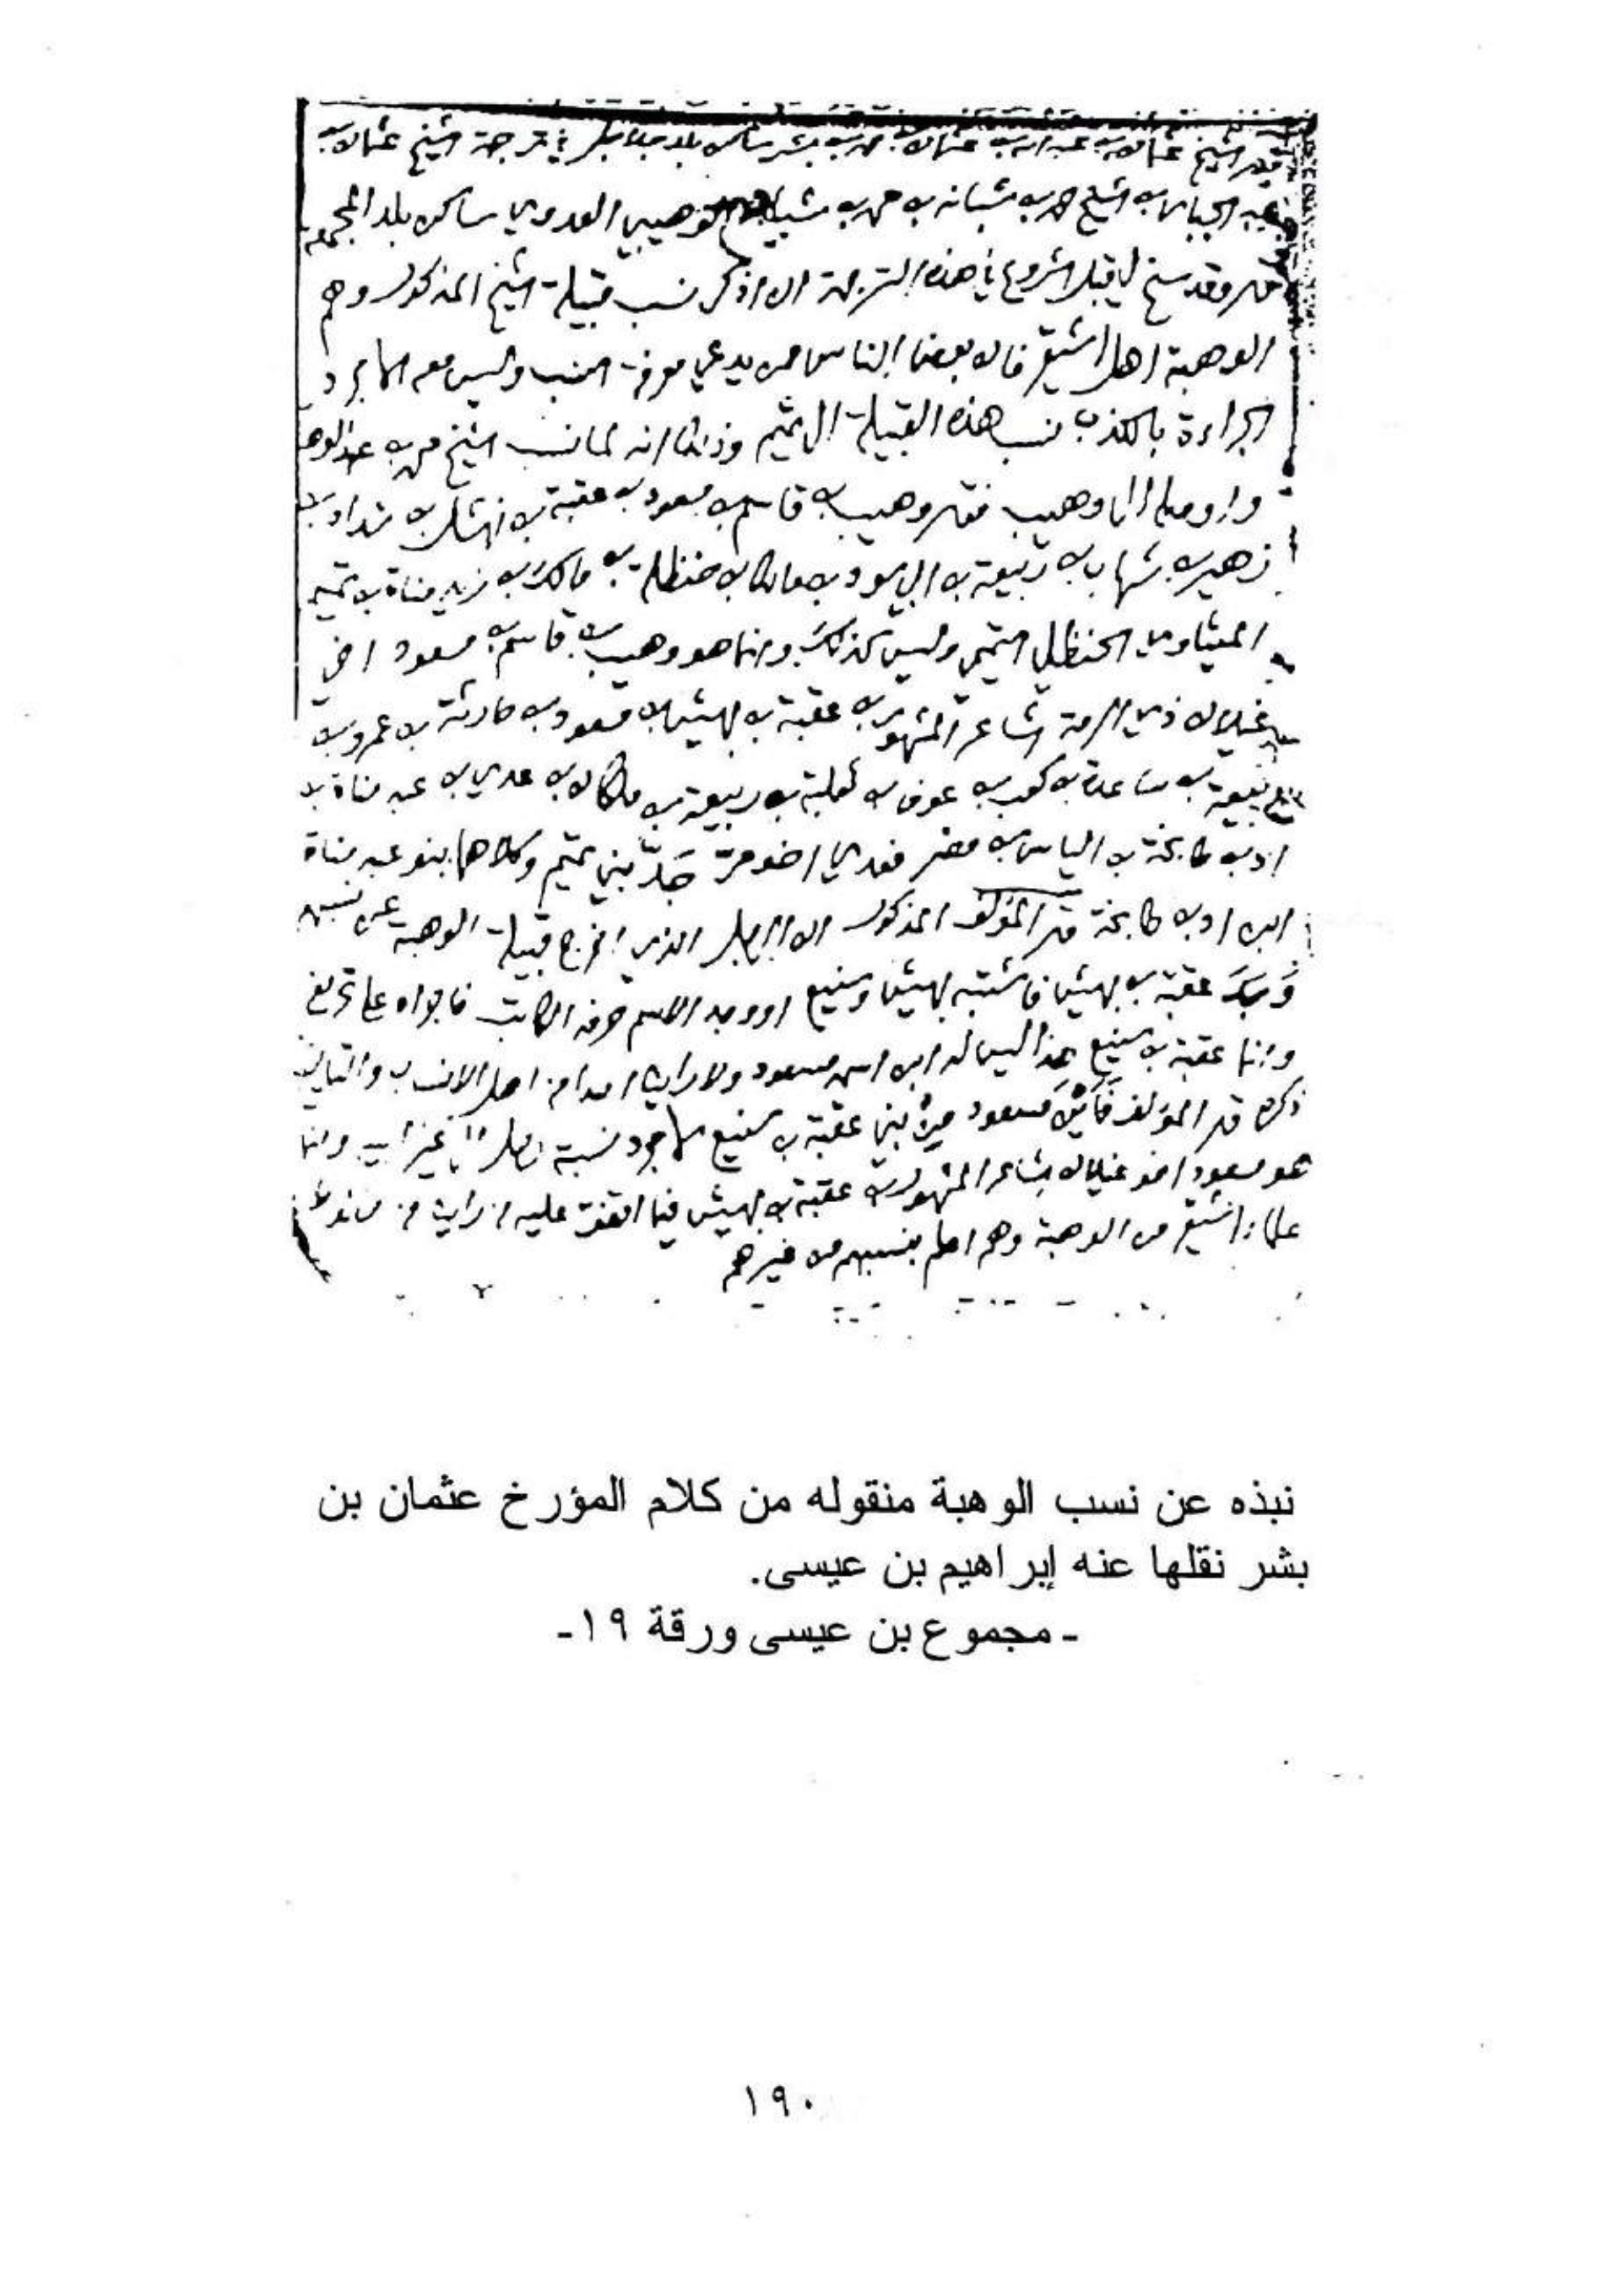 الشيخ عثمان بن عبد الله بن عثمان بن حمد بن بشر ساكن بلد جلاجل في ترجمة الشيخ عثمان بن
عبد الجبار بن الشيخ حمد بن شبانه بن محمد الوهيبي العدوي ساكن بلد المجمعة
قال وقد سنح لي قبل الشروع في هذه الترجمة ان اذكر نسب قبيلة الشيخ المذكور وهم
الوهبة اهل اشيقر فان بعض الناس ممن يدعي معرفة النسب وليس معه الا مجرد
الجراءة بالكذب نسب هذه القبيلة الى تميم وذلك انه لما نسب الشيخ محمد بن عبد الوهاب
واوصله الى وهيب فقال وهيب بن قاسم بن مسعود بن عقبة بن نهشل بن شداد بن
زهير بن شهاب بن ربيعة بن ابي سود بن مالك بن حنظلة بن مالك بن زيد مناة بن تميم
الحنظلي التميمي وليس كذلك وانما هو وهيب بن قاسم بن مسعود اخي
غيلان ذي الرمة الشاعر المشهور بن عقبة بن بهيش بن مسعود بن حارثة بن عمرو بن
ربيعة بن ساعدة بن كعب بن عوف بن ثعلبة بن ربيعة بن ملكان بن عدي بن عبد مناة بن
اد بن طابخة بن الياس بن مضر فعدي اخو مرة جد بني تميم وكلاهما بنو عبد مناة
ابن اد بن طابخة قال المؤلف المذكور ان الرجل الذي اخرج قبيلة الوهبة عن نسبهم
عقبة بن بهيش فاشتبه بهيش وسنيع او وجد الاسم حرفه الكاتب فاجراه على تحريفه
وانما عقبة بن سنيع هذا ليس له ابن اسمه مسعود ولا رايت احدا من اهل الانساب والتاريخ
ذكره قال المؤلف مسعود بني عقبة بن سنيع مجرد نسبة وانما
هو مسعود اخو غيلان الشاعر المشهور بن عقبة بن بهيش فيما اتفقت عليه
علماء اشيقر من الوهبة وهم اعلم بنسبهم من غيرهم
نبذه عن نسب الوهبة منقوله من كلام المؤرخ عثمان بن
بشر نقلها عنه إبراهيم بن عيسى.
- مجموع بن عيسى ورقة ١٩-
١٩٠